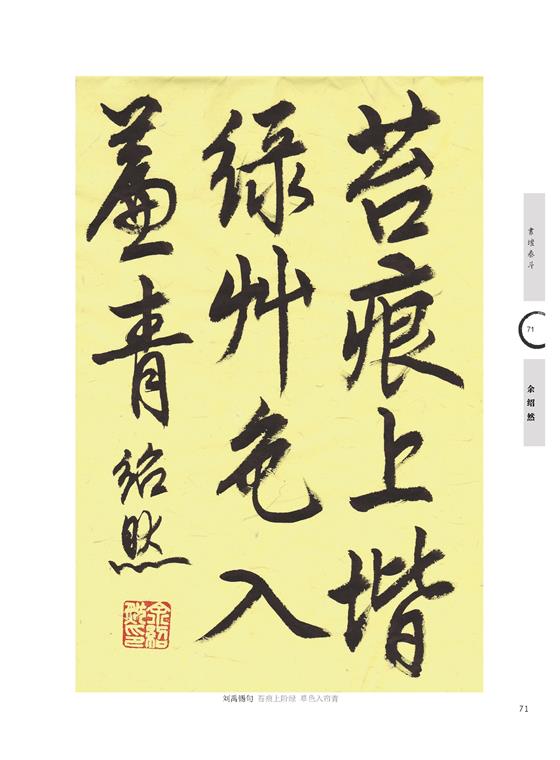 苔痕上堦
绿艸色入
簾青
绍然
余紹然印
刘禹锡句 苔痕上阶绿 草色入帘青
書壇泰斗
71
余绍然
71